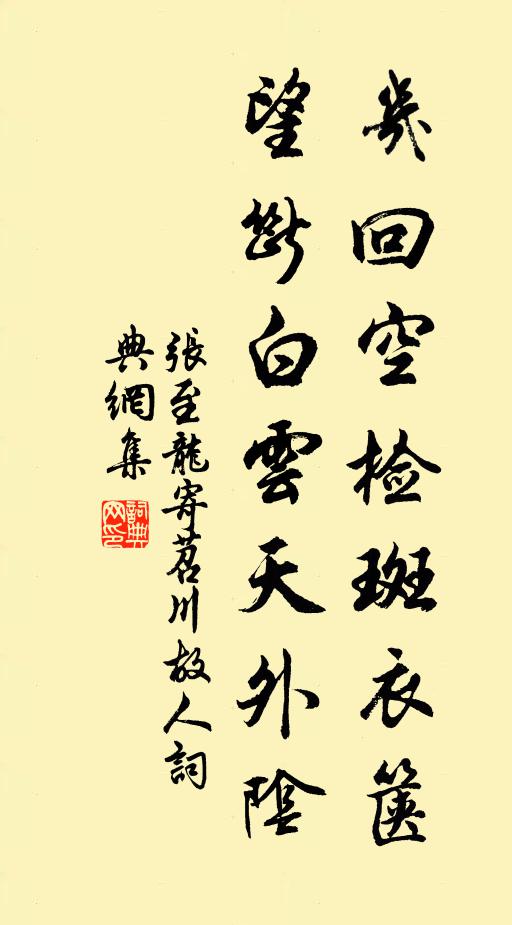 幾回空檢斑衣篋
望斷白雲天外陰
張至龍寄苕川故人詞
典網集
詞典
网印